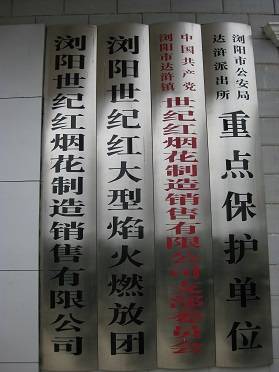 浏阳世纪红烟花制造销售有限公司
浏阳世纪红大型焰火燃放团
中国共产党
浏阳市达浒镇
世纪红烟花制造销售有限公司支部委员会
浏阳市公安局
达浒派出所
重点保护单位